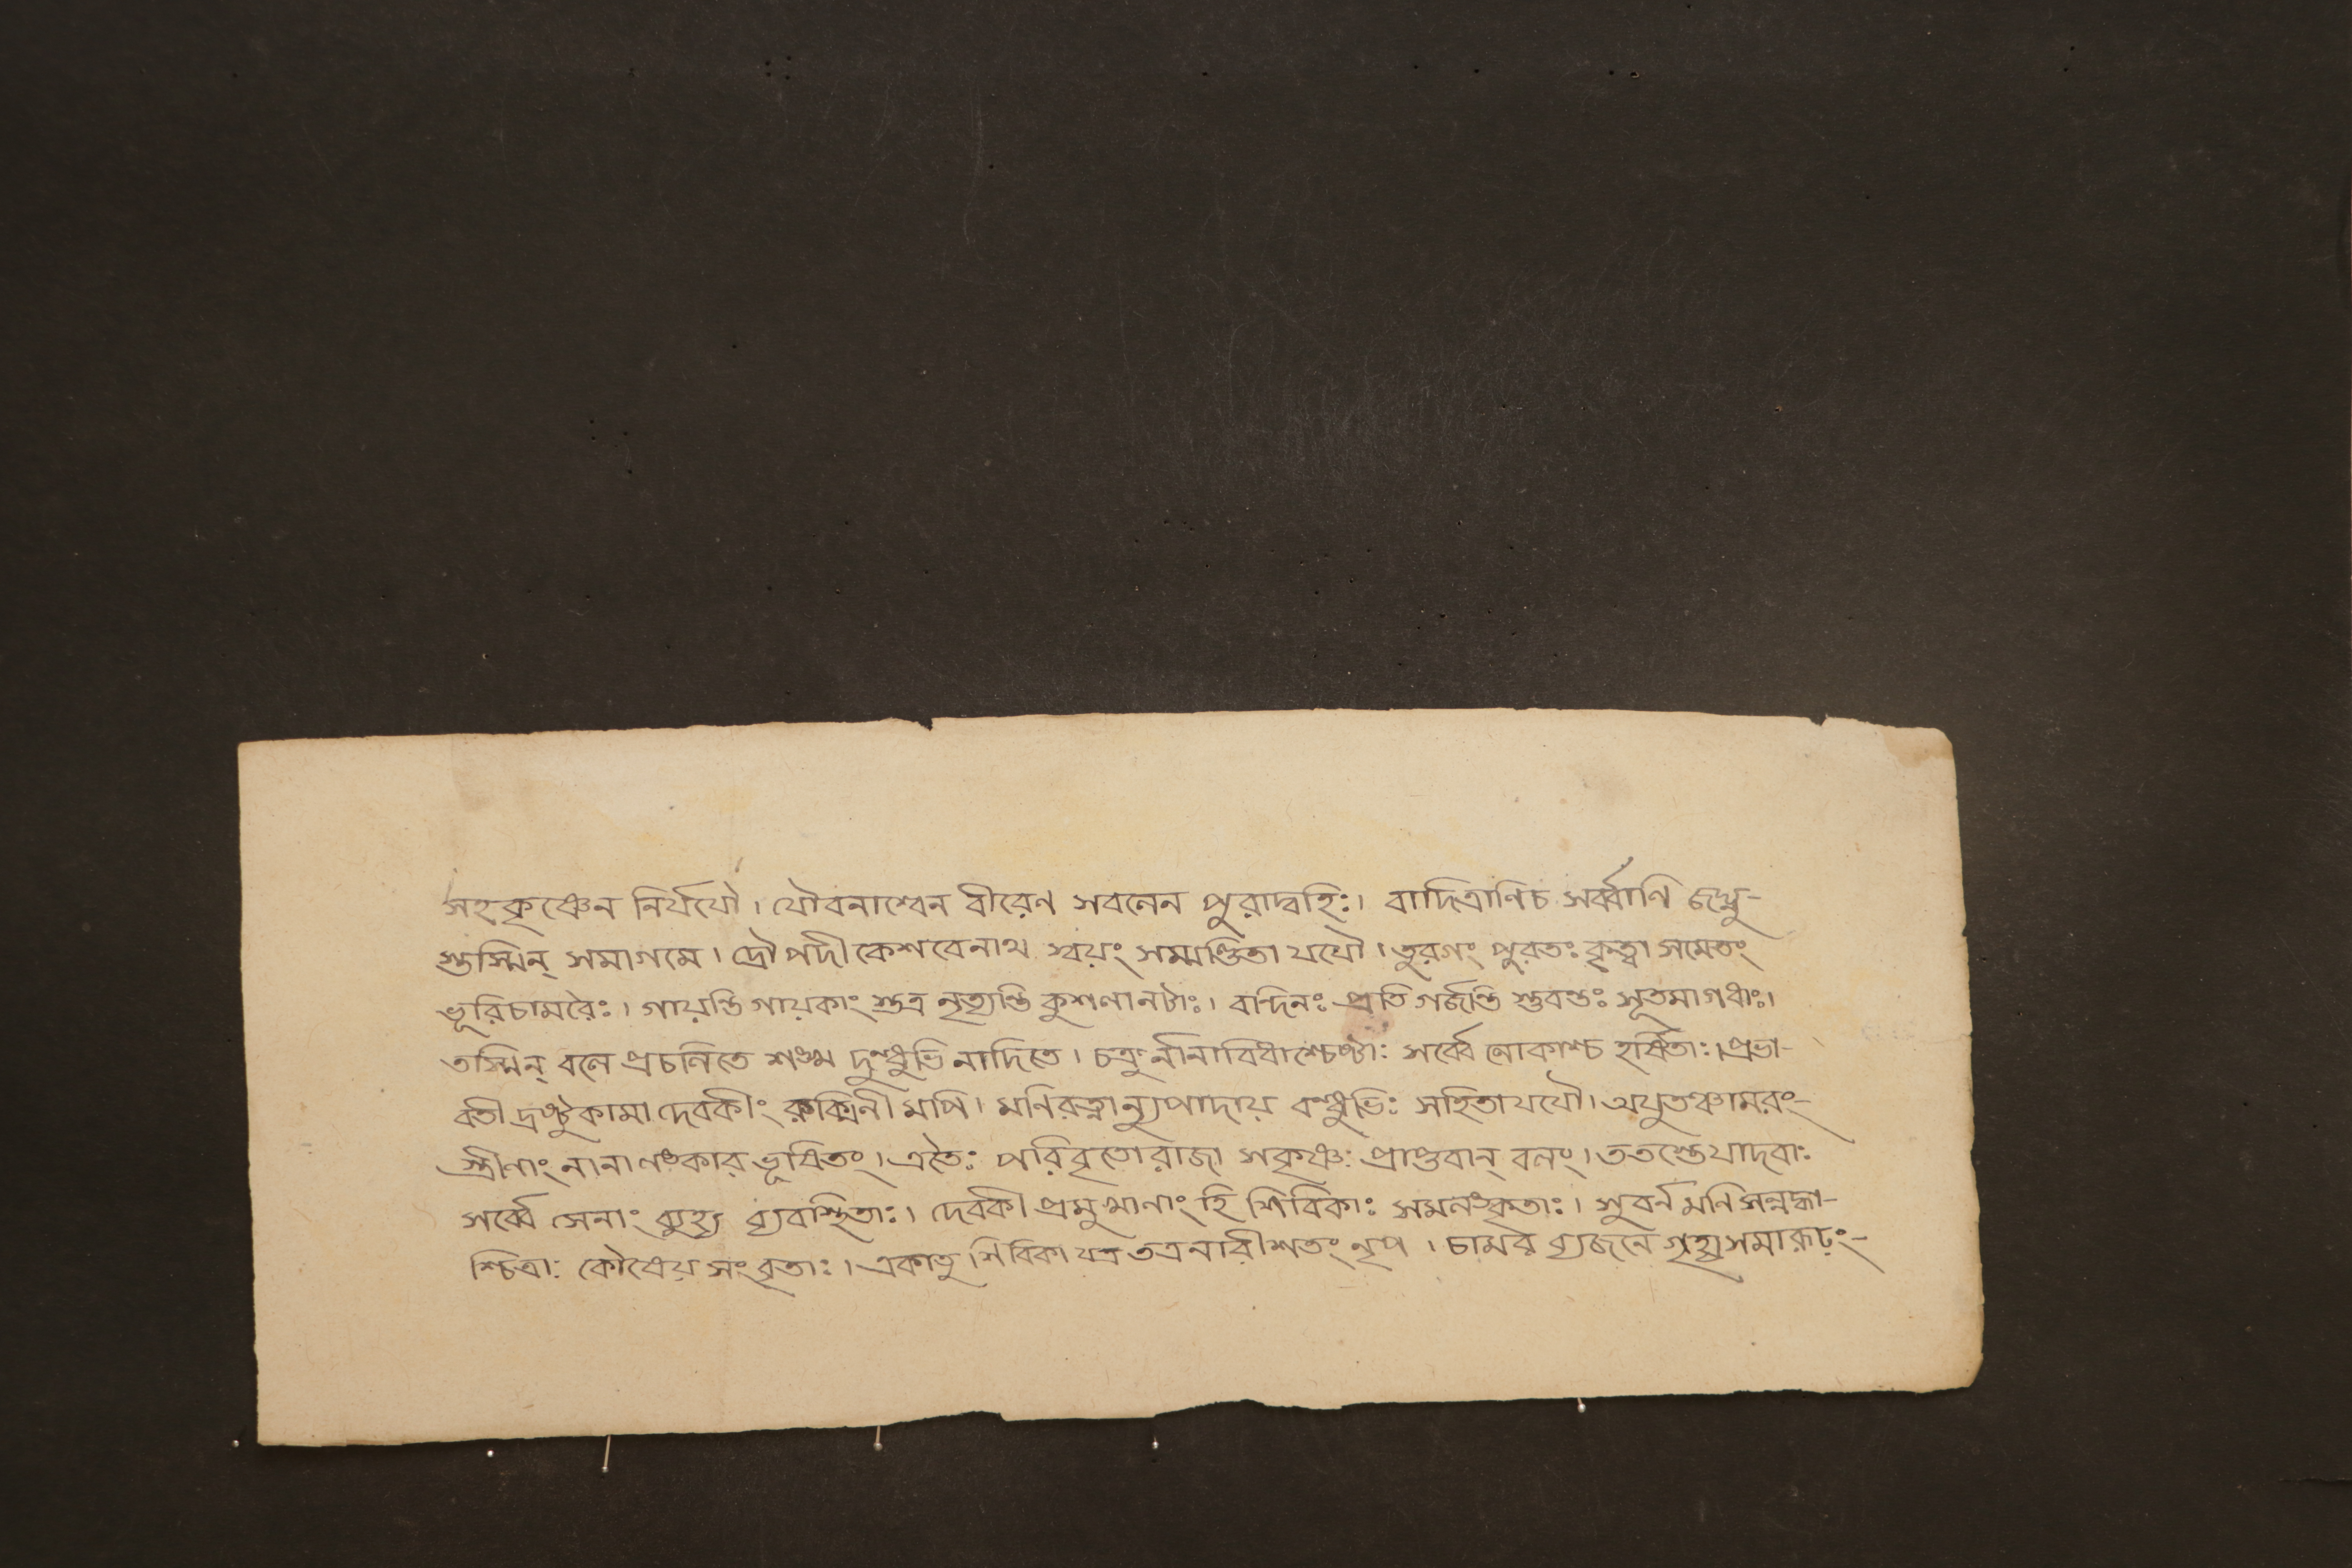 সহকৃষ্ণেন নির্যযৌ। যৌবনাশ্বেন বীরেণ সবলেন পুরাদ্বহিঃ। বাদিত্রাণিচ সর্ব্বাণি জঘ্নু-
স্তস্মিন্ সমাগমে। দ্রৌপদী কেশবেনাথ স্বয়ং সম্মণ্ডিতা যযৌ। তুরগং পুরতঃ কৃত্বা সমেতং
ভূরিচামরৈঃ। গায়ন্তি গায়কাং স্তত্র নৃত্যন্তি কুশলানটাঃ। বন্দিনঃ প্রতি গর্জন্তি স্তুবন্তঃ সূতমাগধাঃ।
তস্মিন্ বলে প্রচলিতে শঙ্খ দুন্ধুভি নাদিতে। চক্রুর্নানাবিধাশ্চেষ্টাঃ সর্ব্বে লোকাশ্চ হর্ষিতাঃ। প্রভা-
বতী দ্রষ্টুকামা দেবকীং রুক্মিনী মপি। মণিরত্নান্যুপাদায় বন্ধুভিঃ সহিতাযযৌ। অযুতঞ্চামরং-
স্ত্রীণাং নানাণঙ্কার ভূষিতং। এতৈঃ পরিবৃতোরাজা সকৃষ্ণঃ প্রাপ্তবান্ বলং। ততস্তেযাদবাঃ
সর্ব্বে সেনাং ব্যুহ্য ব্যবস্থিতাঃ। দেবকী প্রমুখানাং হি শিবিকাঃ সমলঙ্কৃতাঃ। সুবর্ন মণি সন্নদ্ধা-
শ্চিত্রাঃ কৌষেয় সংবৃতাঃ। একাতু শিবিকা যত্র তত্রনারীশতং নৃপ। চামর ব্যজনে গৃহ্যসমারূঢ়ং-